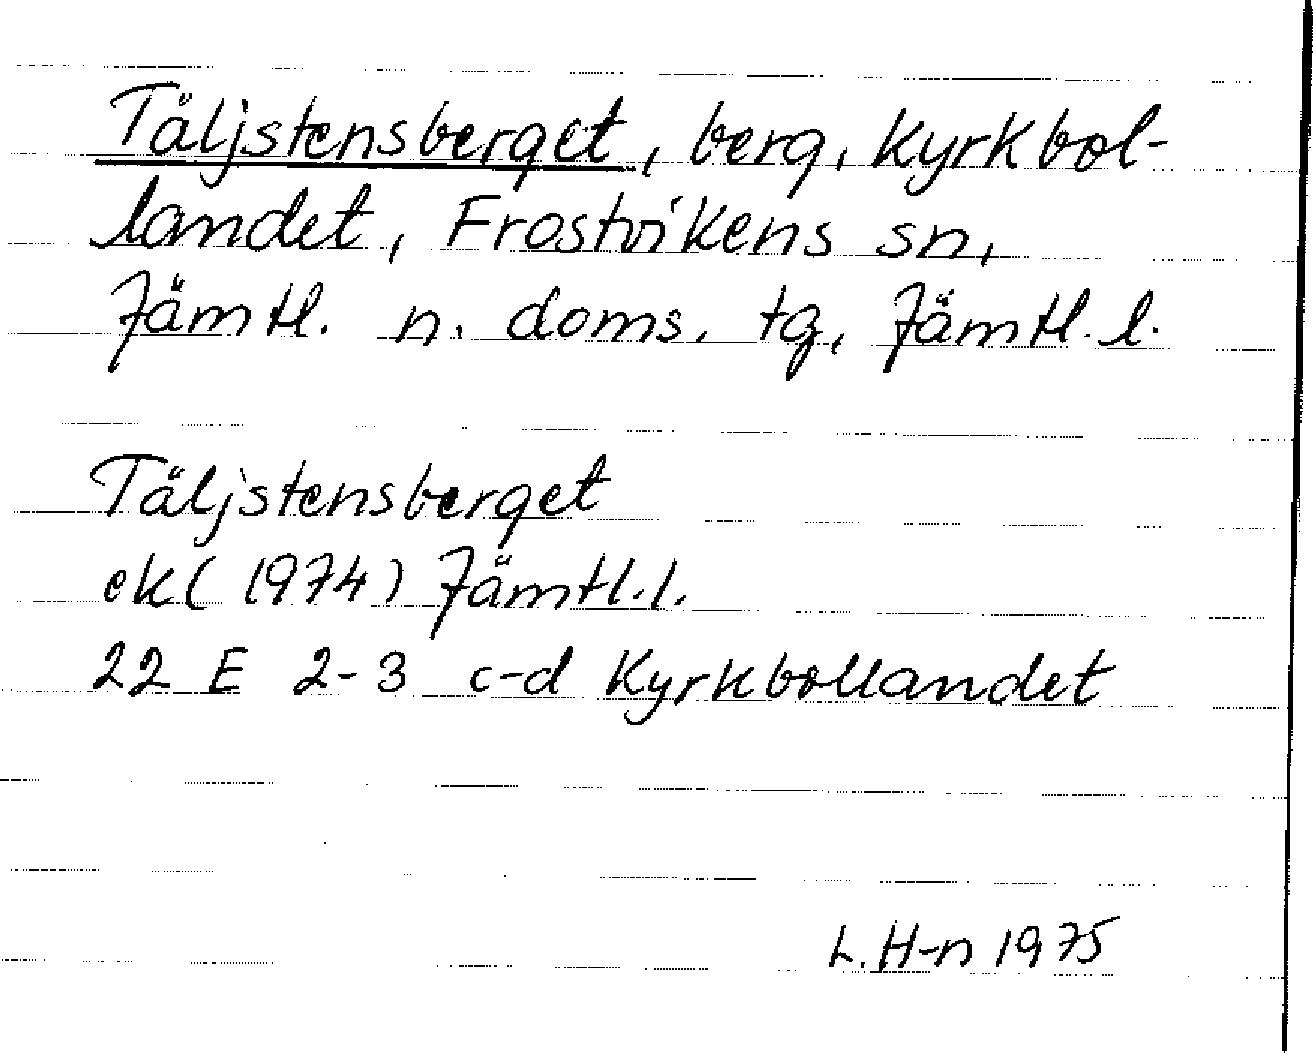 Täljstensberget, berg, Kyrkbol-
landet, Frostvikens sn,
Jämtl. n. doms. tg, Jämtl. l.
Täljstensberget
ek (1974) Jämtl. l.
22 E 2-3 c-d Kyrkbollandet
L. H-n 1975